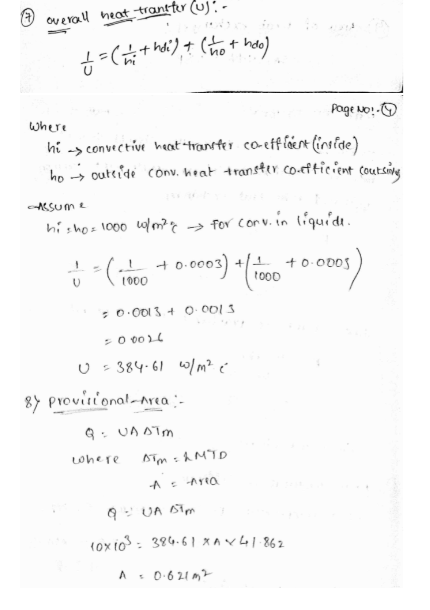 ⑦ overall heat trantfer (U):-
1/U = (1/hi + hdi) + (1/ho + hdo)
Page No:- ④
Where
hi → convective heat transfer co-efficient (inside)
ho → outside conv. heat transfer co.efficient
Assume
hi = ho = 1000 w/m²c → for conv. in liquids.
1/U = (1/1000 + 0.0003) + (1/1000 + 0.0003)
= 0.0013 + 0.0013
= 0.0026
U = 384.61 w/m² c
8) Provisional Area:-
Q = UA ΔTm
where ΔTm = LMTD
A = Area
Q = UA ΔTm
10×10³ = 384.61 × A × 41.862
A = 0.621 m²